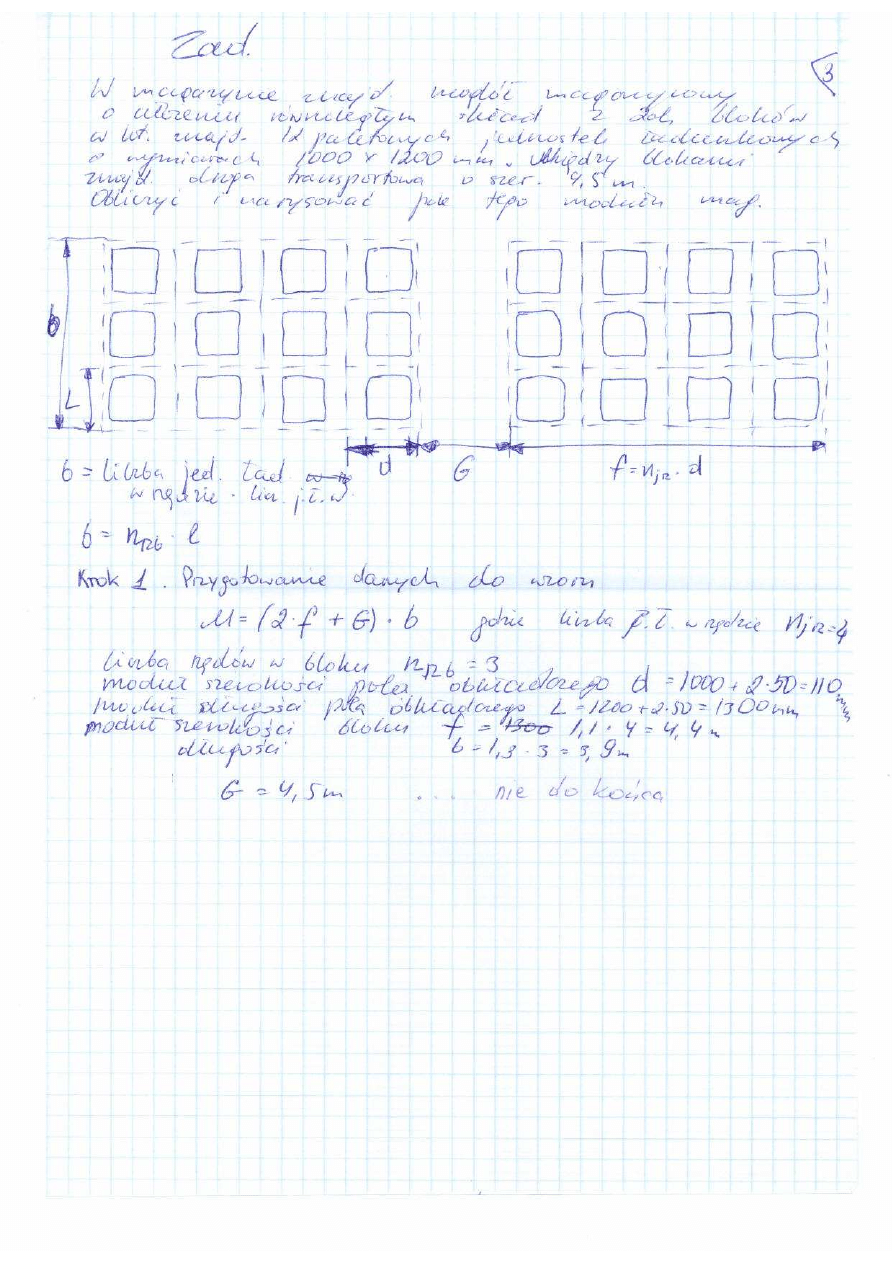 Zad.
3
W magazynie znajd. moduł magazynowy
o ułożeniu równoległym składa z 2ch bloków
w kt. znajd. 12 paletowych jednostek ładunkowych
o wymiarach 1000 x 1200 mm. Między blokami
znajd. droga transportowa o szer. 4,5 m.
Obliczyć i narysować pole tego modułu mag.
b
L
d
G
f = njr · d
b = liczba jed. ład.
w rzędzie
b = nrzb · l
Krok 1. Przygotowanie danych do wzoru
M = (2·f + G) · b gdzie liczba j.ł. w rzędzie njrz = 4
liczba rzędów w bloku nrzb = 3
moduł szerokości pola odkładczego d = 1000 + 2·50 = 110
mm
moduł długości pola odkładczego L = 1200 + 2·50 = 1300 mm
moduł szerokości bloku f = 1300 1,1 · 4 = 4,4 m
długości b = 1,3 · 3 = 3,9 m
G = 4,5 m ... nie do końca